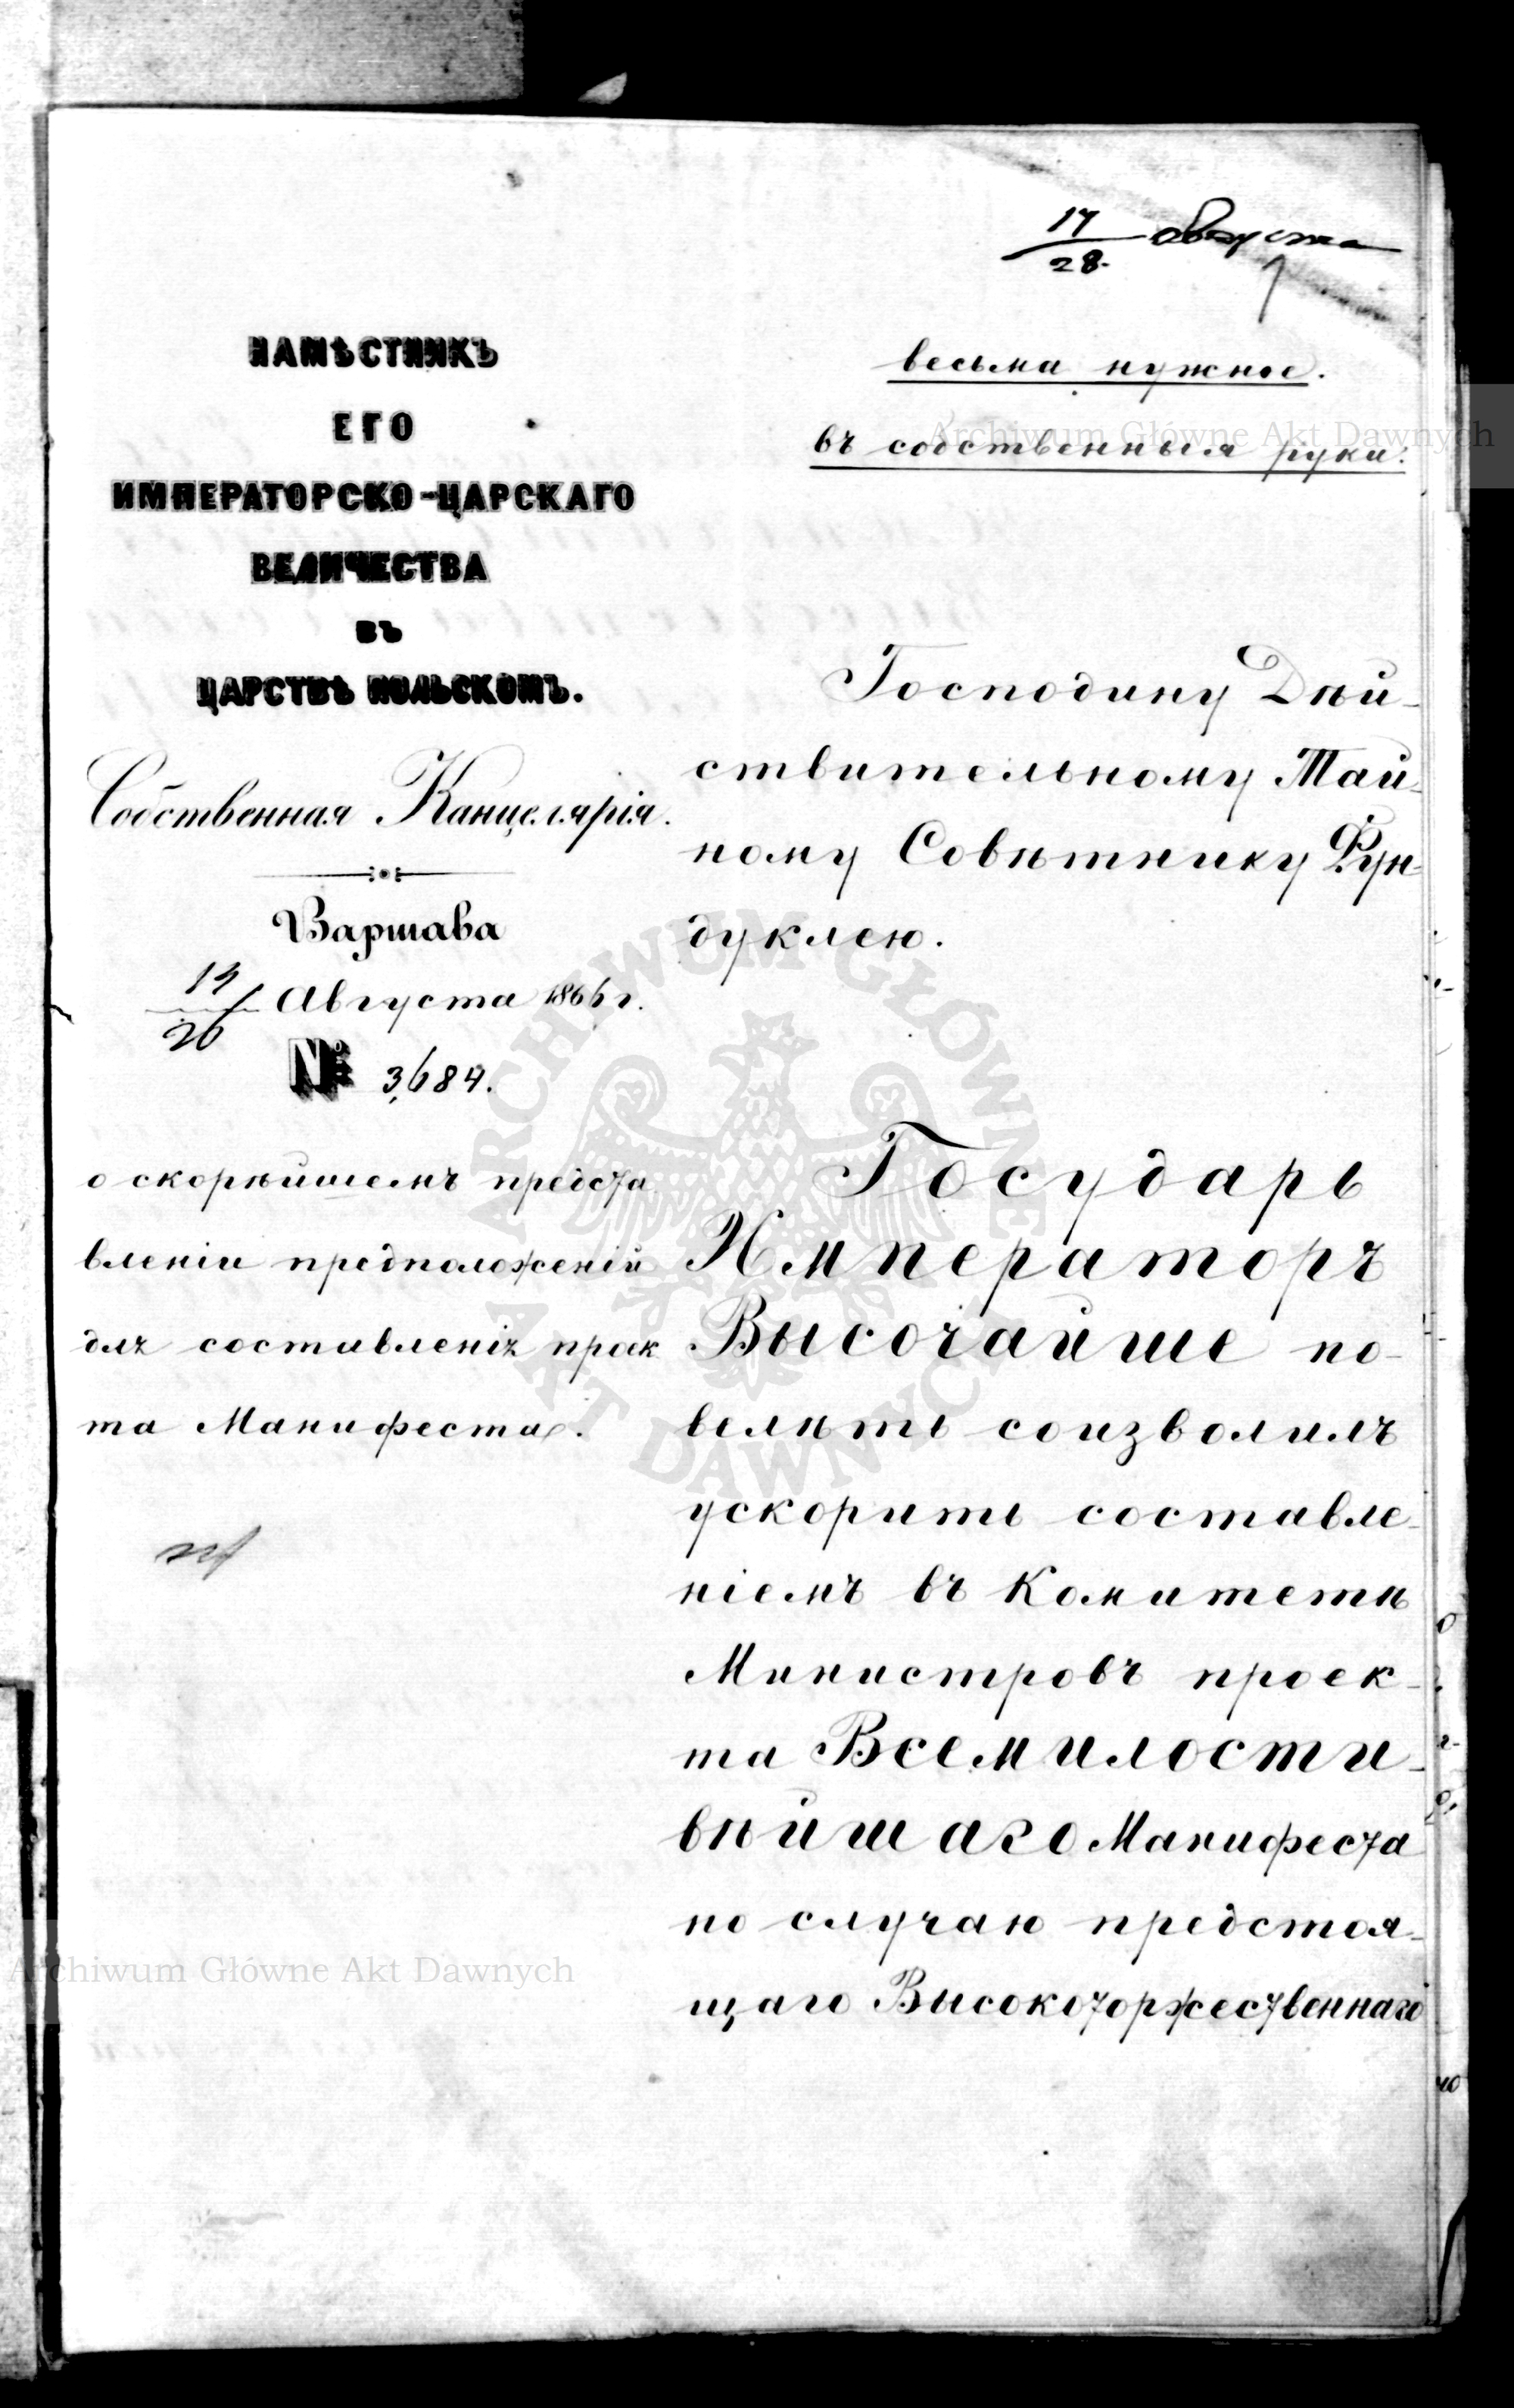 17/28. августа
весьма нужное.
въ собственныя руки.
НАМѢСТНИКЪ
ЕГО
ИМПЕРАТОРСКО-ЦАРСКАГО
ВЕЛИЧЕСТВА
ВЪ
ЦАРСТВѢ ПОЛЬСКОМЪ.
Собственная Канцелярія.
Варшава
14/26 Августа 1866 г.
№ 3,684.
о скорѣйшемъ предста
вленіи предположеній
для составленія проек
та Манифеста.
Господину Дѣй-
ствительному Тай-
ному Совѣтнику Фун-
дуклею.
Государь
Императоръ
Высочайше по-
велѣть соизволилъ
ускорить составле-
ніемъ въ Комитетѣ
Министровъ проек-
та Всемилости-
вѣйшаго Манифеста
по случаю предстоя-
щаго Высокоторжественнаго
Archiwum Główne Akt Dawnych
ARCHIWUM GŁÓWNE
AKT DAWNYCH
Archiwum Główne Akt Dawnych